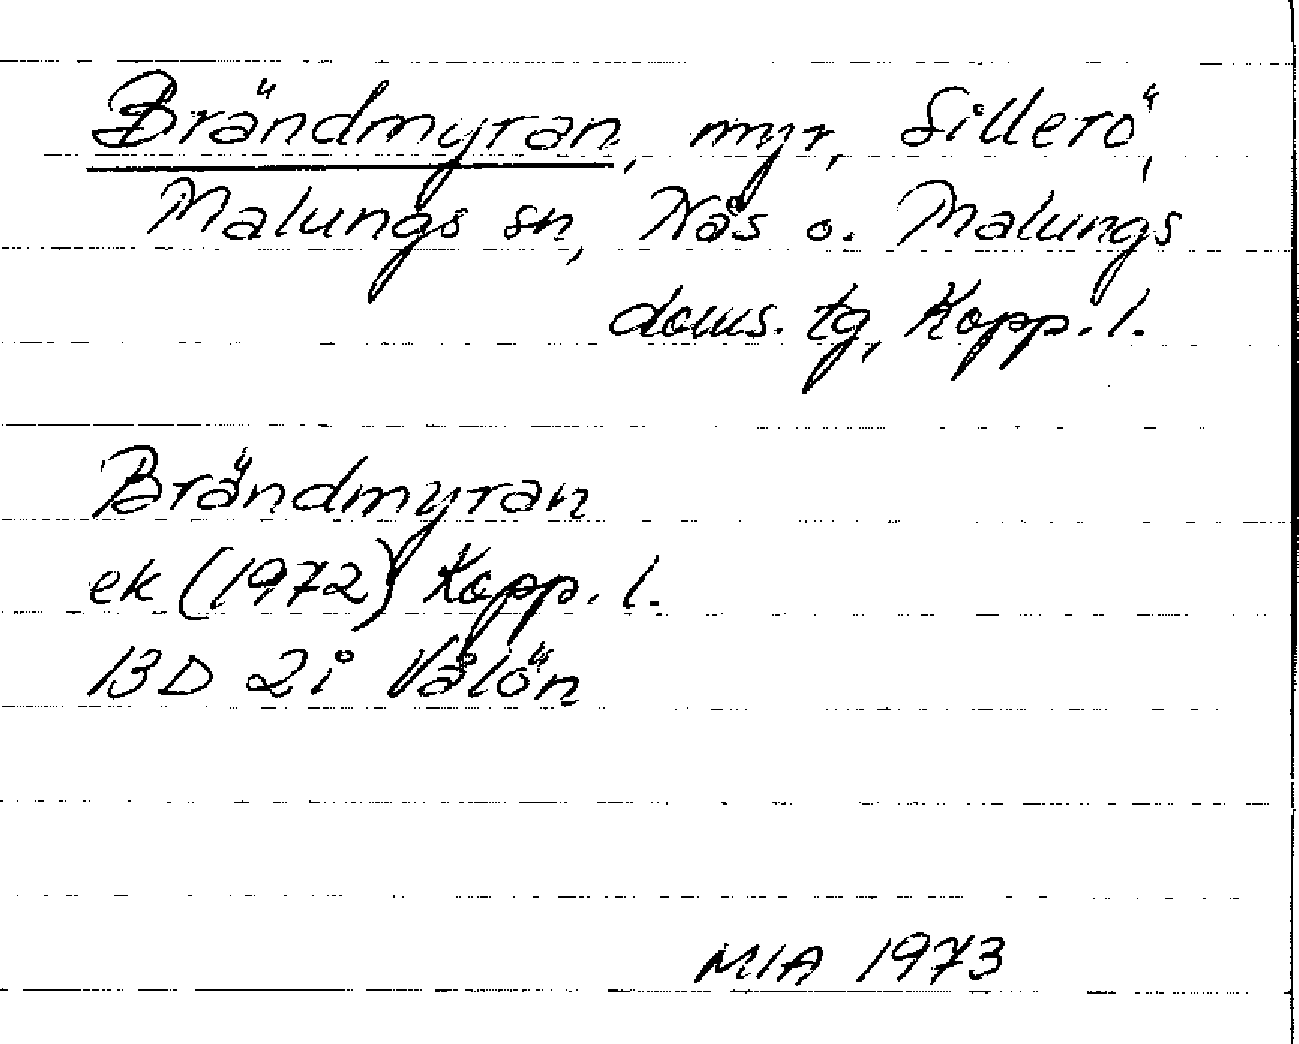 Brändmyran, myr, Sillerö,
Malungs sn, Nås o. Malungs
doms. tg, Kopp. l.
Brändmyran
ek (1972) Kopp. l.
13D 2i Vålön
MIA 1973